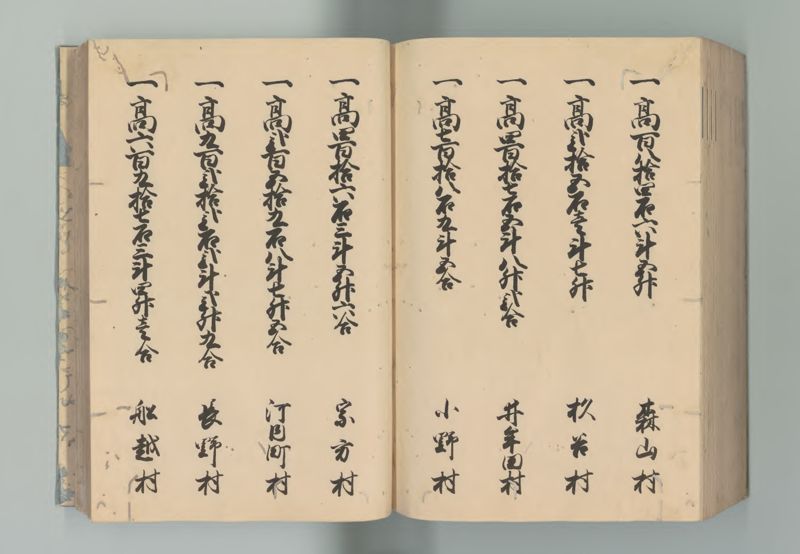 一高百八拾四石六斗五升 森山村
一高弐拾五石壱斗七升 杦谷村
一高四百拾七石五斗八升弐合 井牟田村
一高七百拾八石九斗五合 小野村
一高四百拾六石三斗五升六合 宗方村
一高弐百五拾九石八斗七升五合 町村
一高九百弐拾弐石弐斗弐升九合 長野村
一高六百九拾七石三斗四升壱合 船越村